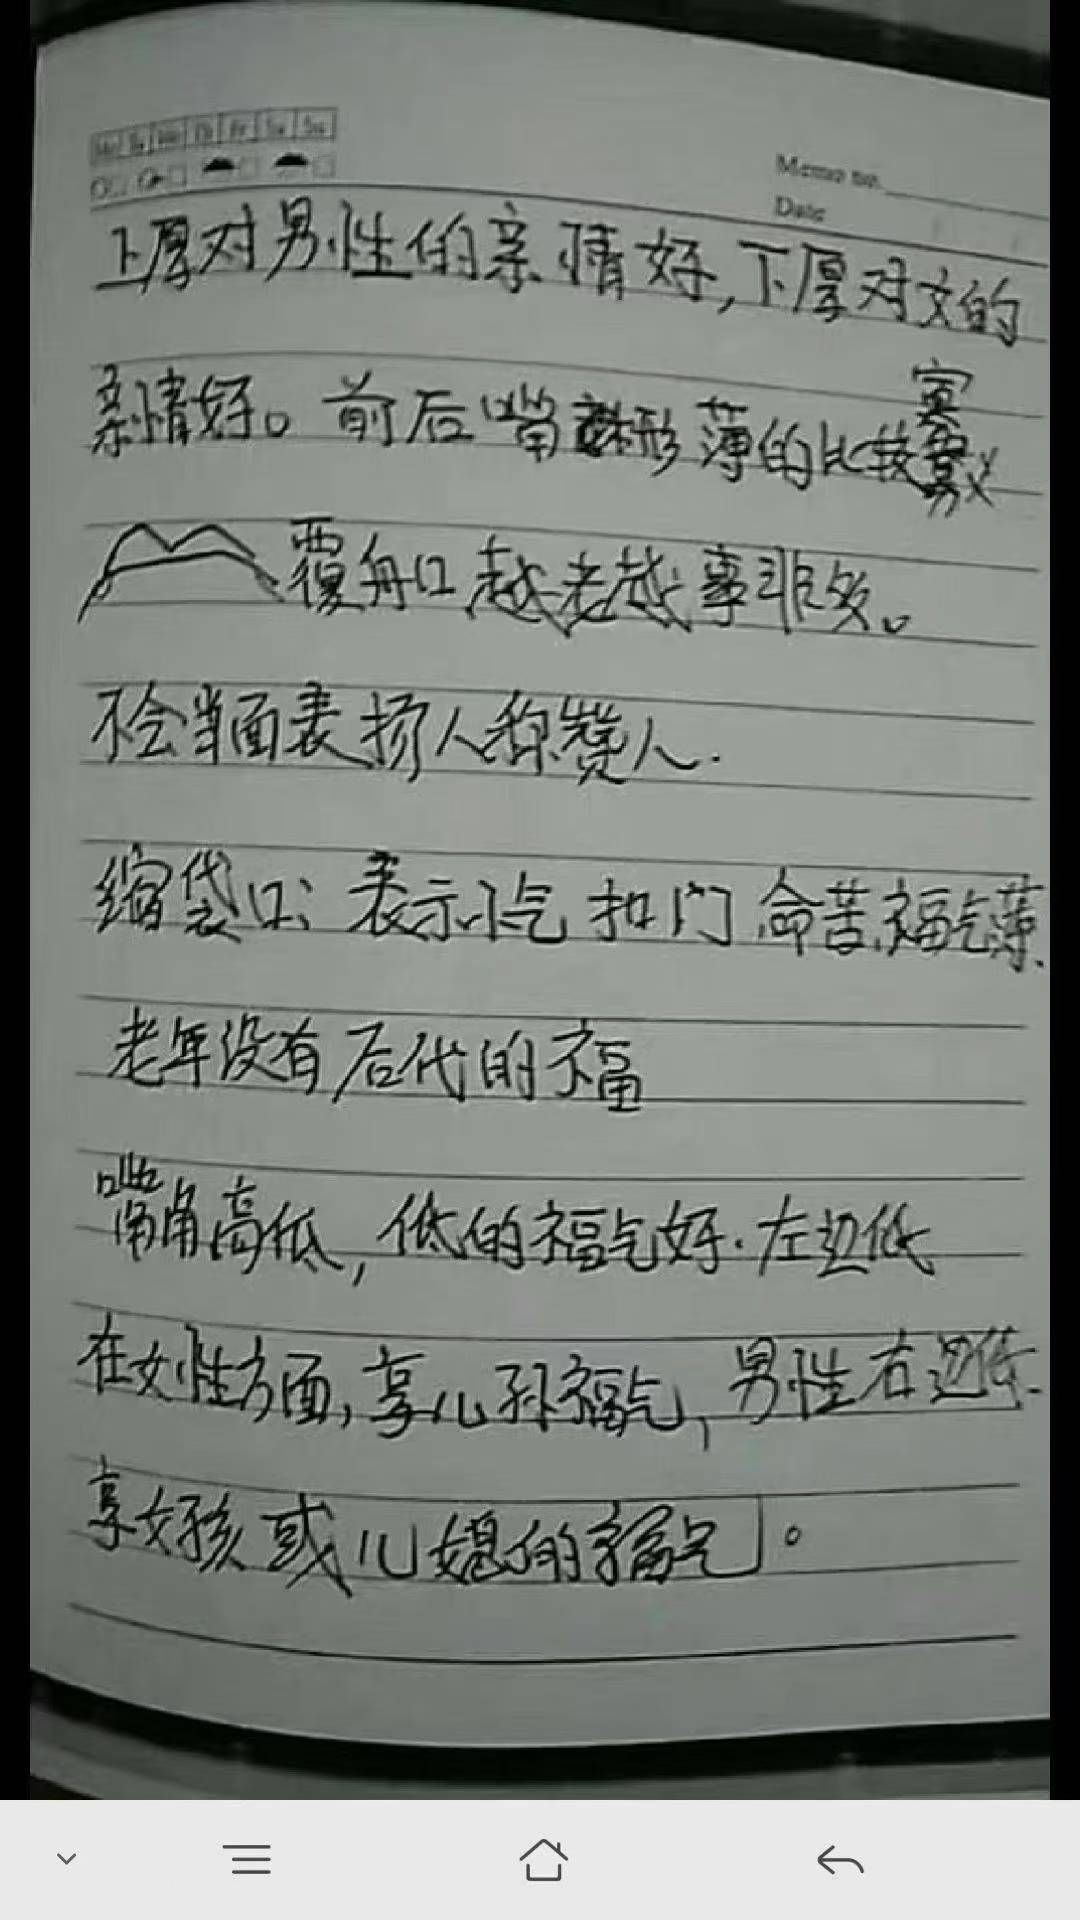 Mo Tu We Th Fr Sa Su
Memo no.
Date
上厚对男性的亲情好,下厚对女的
亲情好。前后嘴形薄的比较寡
覆舟口越老越事非多。
不会当面表扬人称赞人.
缩袋口: 表示小气 扣门 命苦.福气薄.
老年没有后代的福
嘴角高低,低的福气好.左边低
在女性方面,享儿孙福气,男性右边低.
享女孩或儿媳的福气。